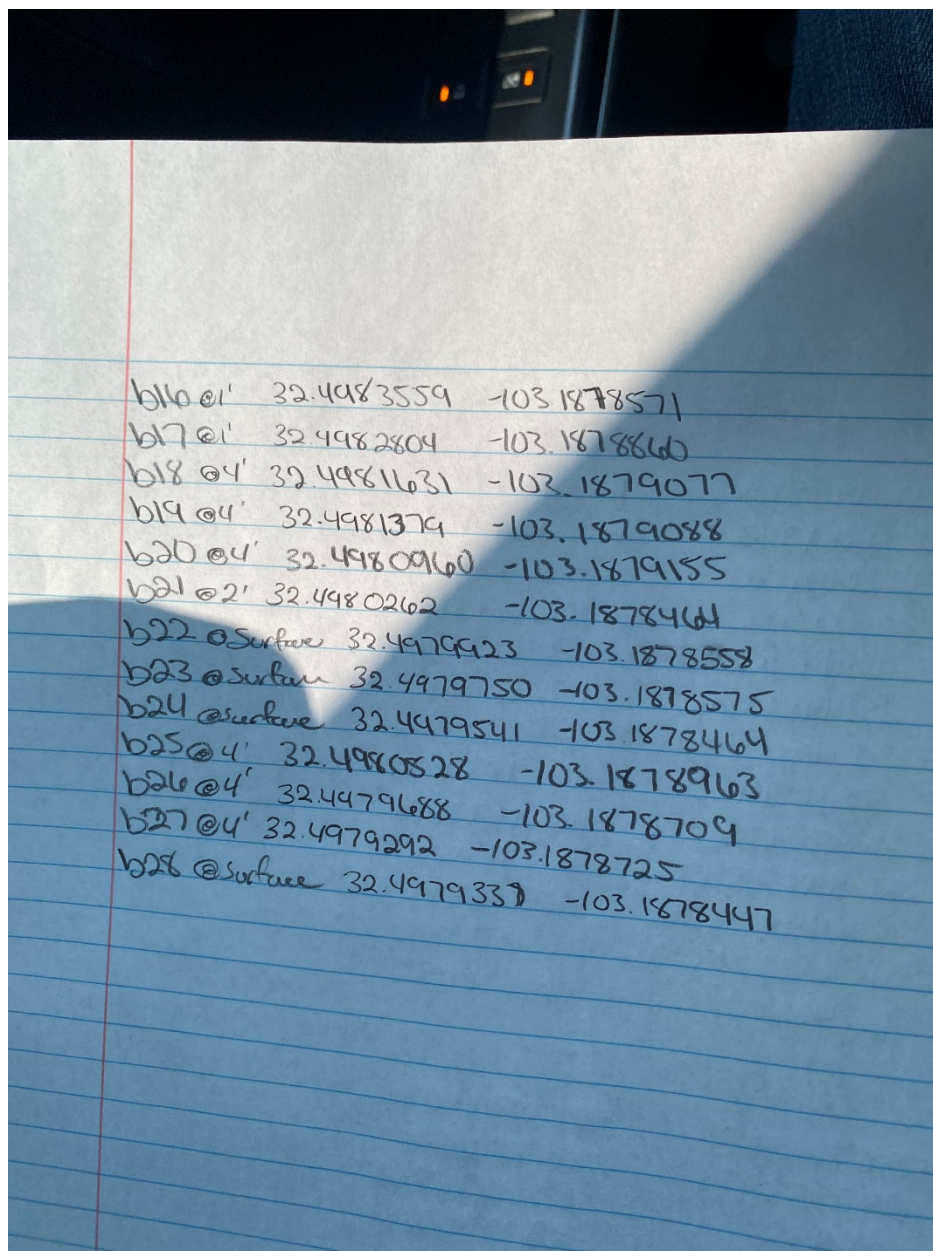 b16 @1' 32.4983559 -103.1878571
b17 @1' 32.4982804 -103.1878860
b18 @4' 32.4981631 -103.1879077
b19 @4' 32.4981379 -103.1879088
b20 @4' 32.4980960 -103.1879155
b21 @2' 32.4980262 -103.1878464
b22 @Surface 32.4979923 -103.1878558
b23 @Surface 32.4979750 -103.1878575
b24 @surface 32.4979541 -103.1878464
b25@4' 32.4980528 -103.1878963
b26 @4' 32.4979688 -103.1878709
b27 @4' 32.4979292 -103.1878725
b28 @surface -103.1878447